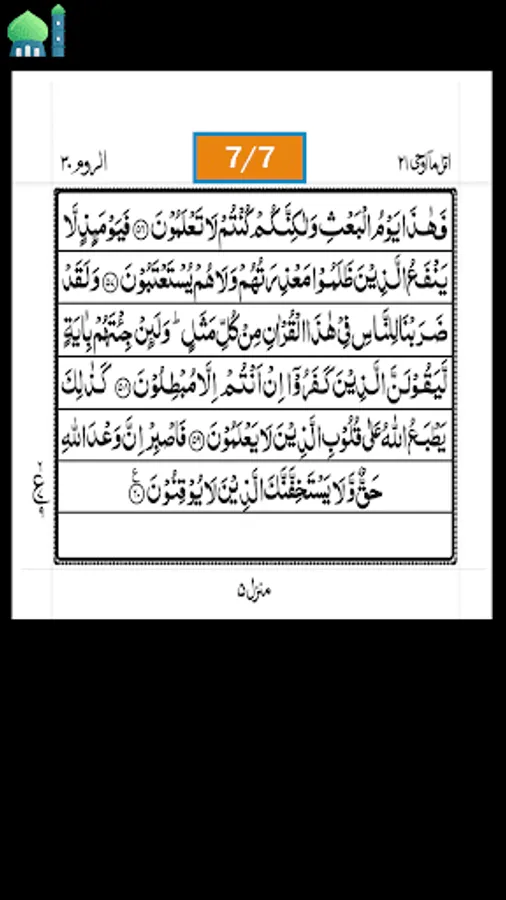 7/7
اتل ما اوحی ۲۱
الروم ۳۰
فَهٰذَا یَوْمُ الْبَعْثِ وَلٰكِنَّكُمْ كُنْتُمْ لَا تَعْلَمُوْنَ ۝۵۶ فَیَوْمَىِٕذٍ لَّا
یَنْفَعُ الَّذِیْنَ ظَلَمُوْا مَعْذِرَتُهُمْ وَلَا هُمْ یُسْتَعْتَبُوْنَ ۝۵۷ وَلَقَدْ
ضَرَبْنَا لِلنَّاسِ فِیْ هٰذَا الْقُرْاٰنِ مِنْ كُلِّ مَثَلٍ ؕ وَلَىِٕنْ جِئْتَهُمْ بِاٰیَةٍ
لَّیَقُوْلَنَّ الَّذِیْنَ كَفَرُوْۤا اِنْ اَنْتُمْ اِلَّا مُبْطِلُوْنَ ۝۵۸ كَذٰلِكَ
یَطْبَعُ اللّٰهُ عَلٰی قُلُوْبِ الَّذِیْنَ لَا یَعْلَمُوْنَ ۝۵۹ فَاصْبِرْ اِنَّ وَعْدَ اللّٰهِ
حَقٌّ وَّلَا یَسْتَخِفَّنَّكَ الَّذِیْنَ لَا یُوْقِنُوْنَ ۝۶۰
منزل ۵